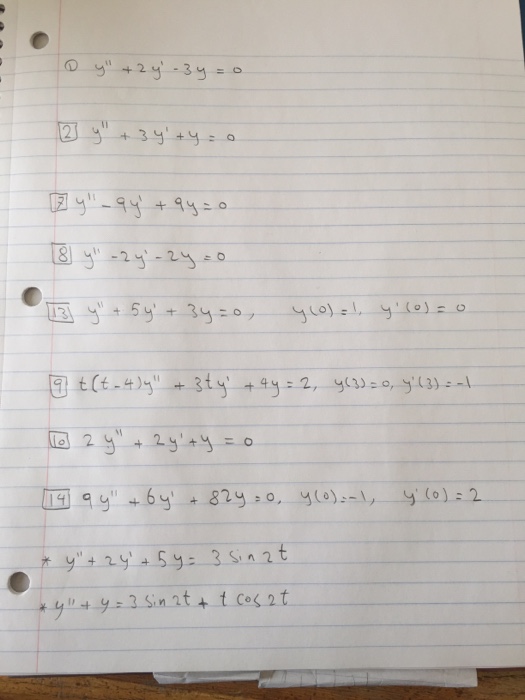 ① y'' + 2y' - 3y = 0
2 y'' + 3y' + y = 0
7 y'' - 9y' + 9y = 0
8 y'' - 2y' - 2y = 0
13 y'' + 5y' + 3y = 0, y(0) = 1, y'(0) = 0
9 t(t-4)y'' + 3ty' + 4y = 2, y(3) = 0, y'(3) = -1
10 2y'' + 2y' + y = 0
14 9y'' + 6y' + 82y = 0, y(0) = -1, y'(0) = 2
* y'' + 2y' + 5y = 3 sin 2t
* y'' + y = 3 sin 2t + t cos 2t